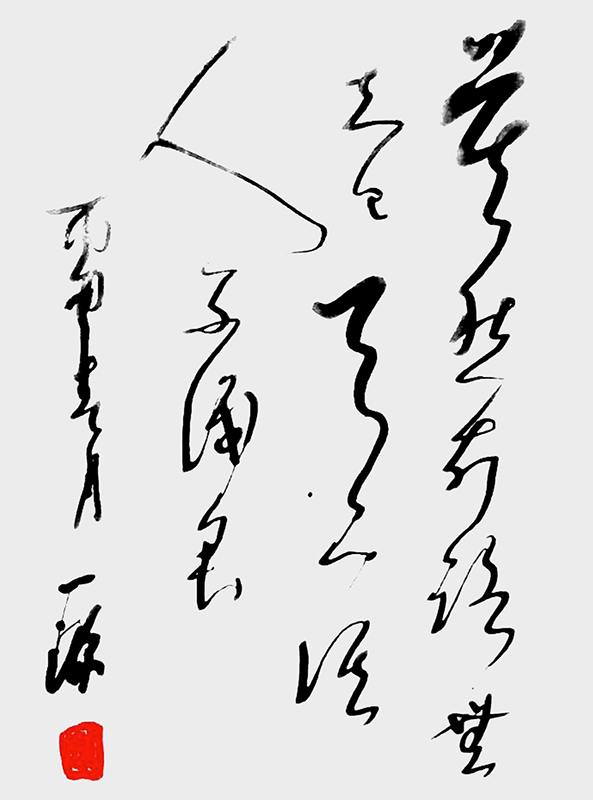 莫愁前路無
知己天下誰
人不識君
丙申春月 一